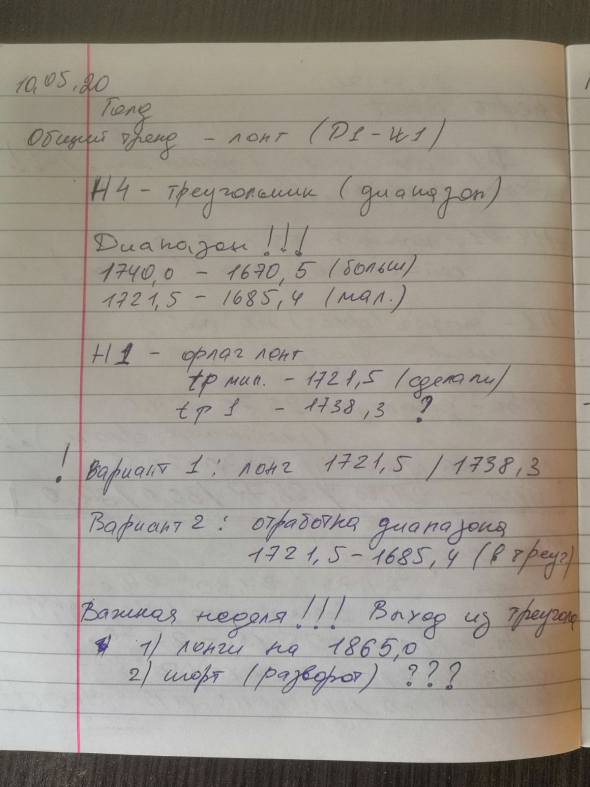 10.05.20
Голд
Общий тренд - лонг (D1-H1)
H4 - треугольник (диапазон)
Диапазон!!!
1740,0 - 1670,5 (больш)
1721,5 - 1685,4 (мал.)
H1 - флаг лонг
tp мин. - 1721,5 (сделали)
tp 1 - 1738,3 ?
! Вариант 1: лонг 1721,5 / 1738,3
Вариант 2: отработка диапазона
1721,5 - 1685,4 (в треуг)
Важная неделя!!! Выход из
1) лонги на 1865,0
2) шорт (разворот) ???